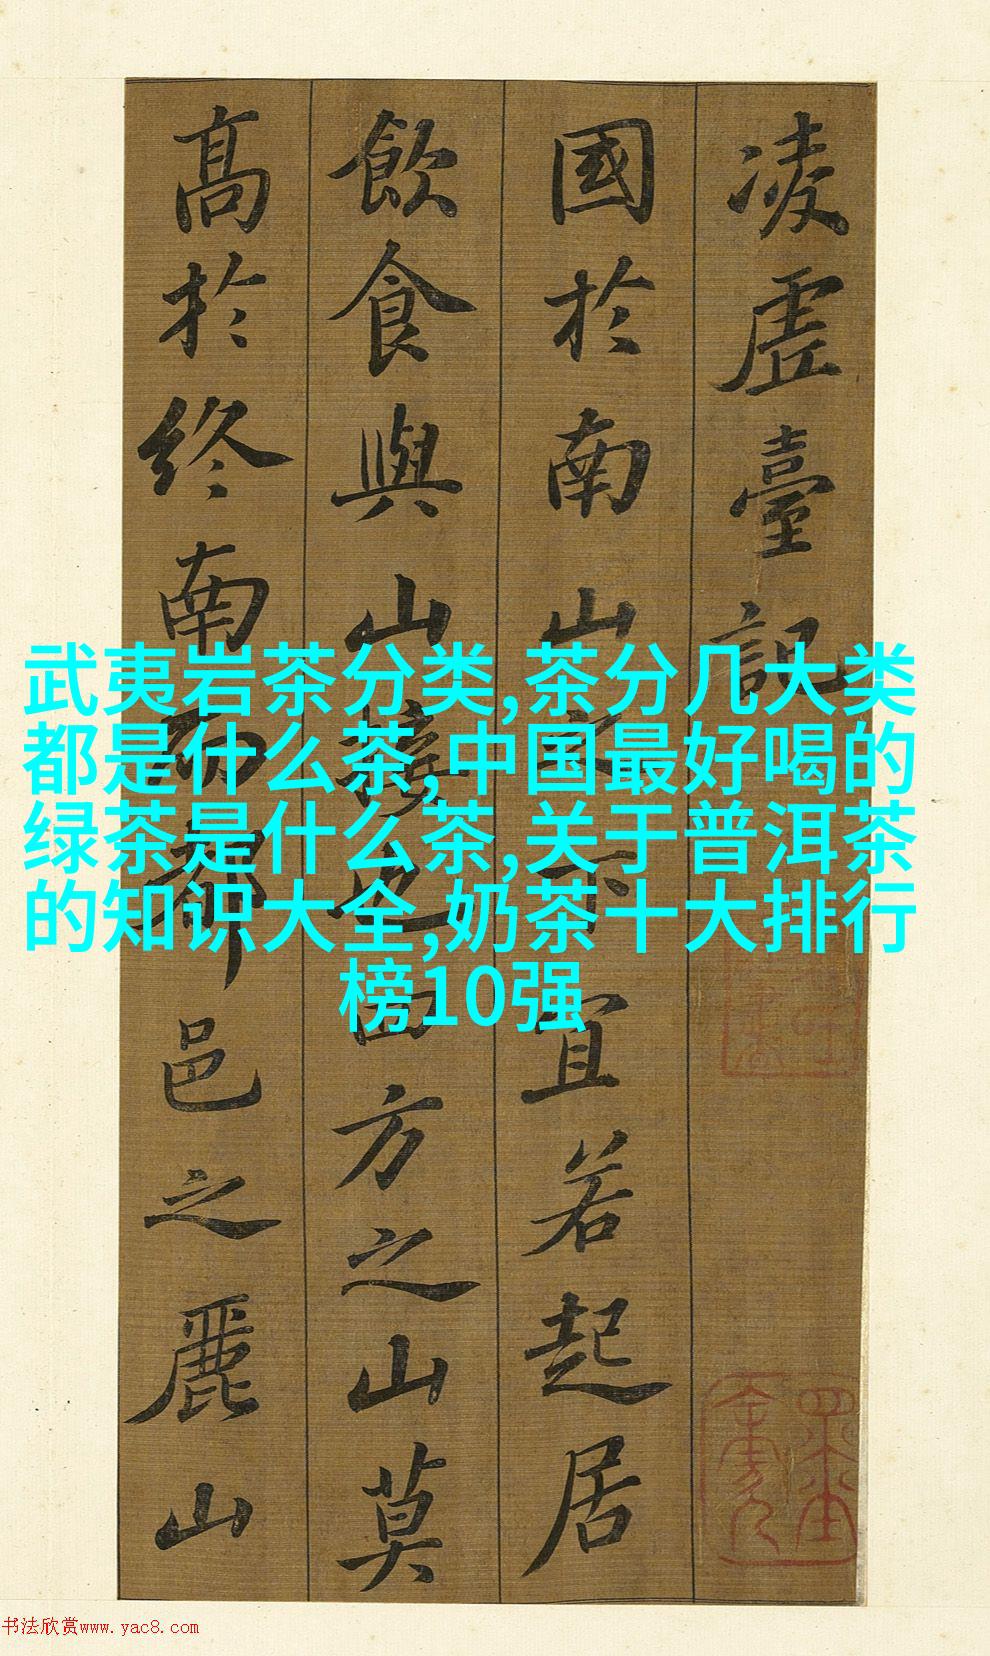 凌虛臺記
國於南山之下宜若起居
飲食與山接也四方之山莫
高於終南而都邑之麗山
武夷岩茶分类,茶分几大类
都是什么茶,中国最好喝的
绿茶是什么茶,关于普洱茶
的知识大全,奶茶十大排行
榜10强
书法欣赏www.yac8.com